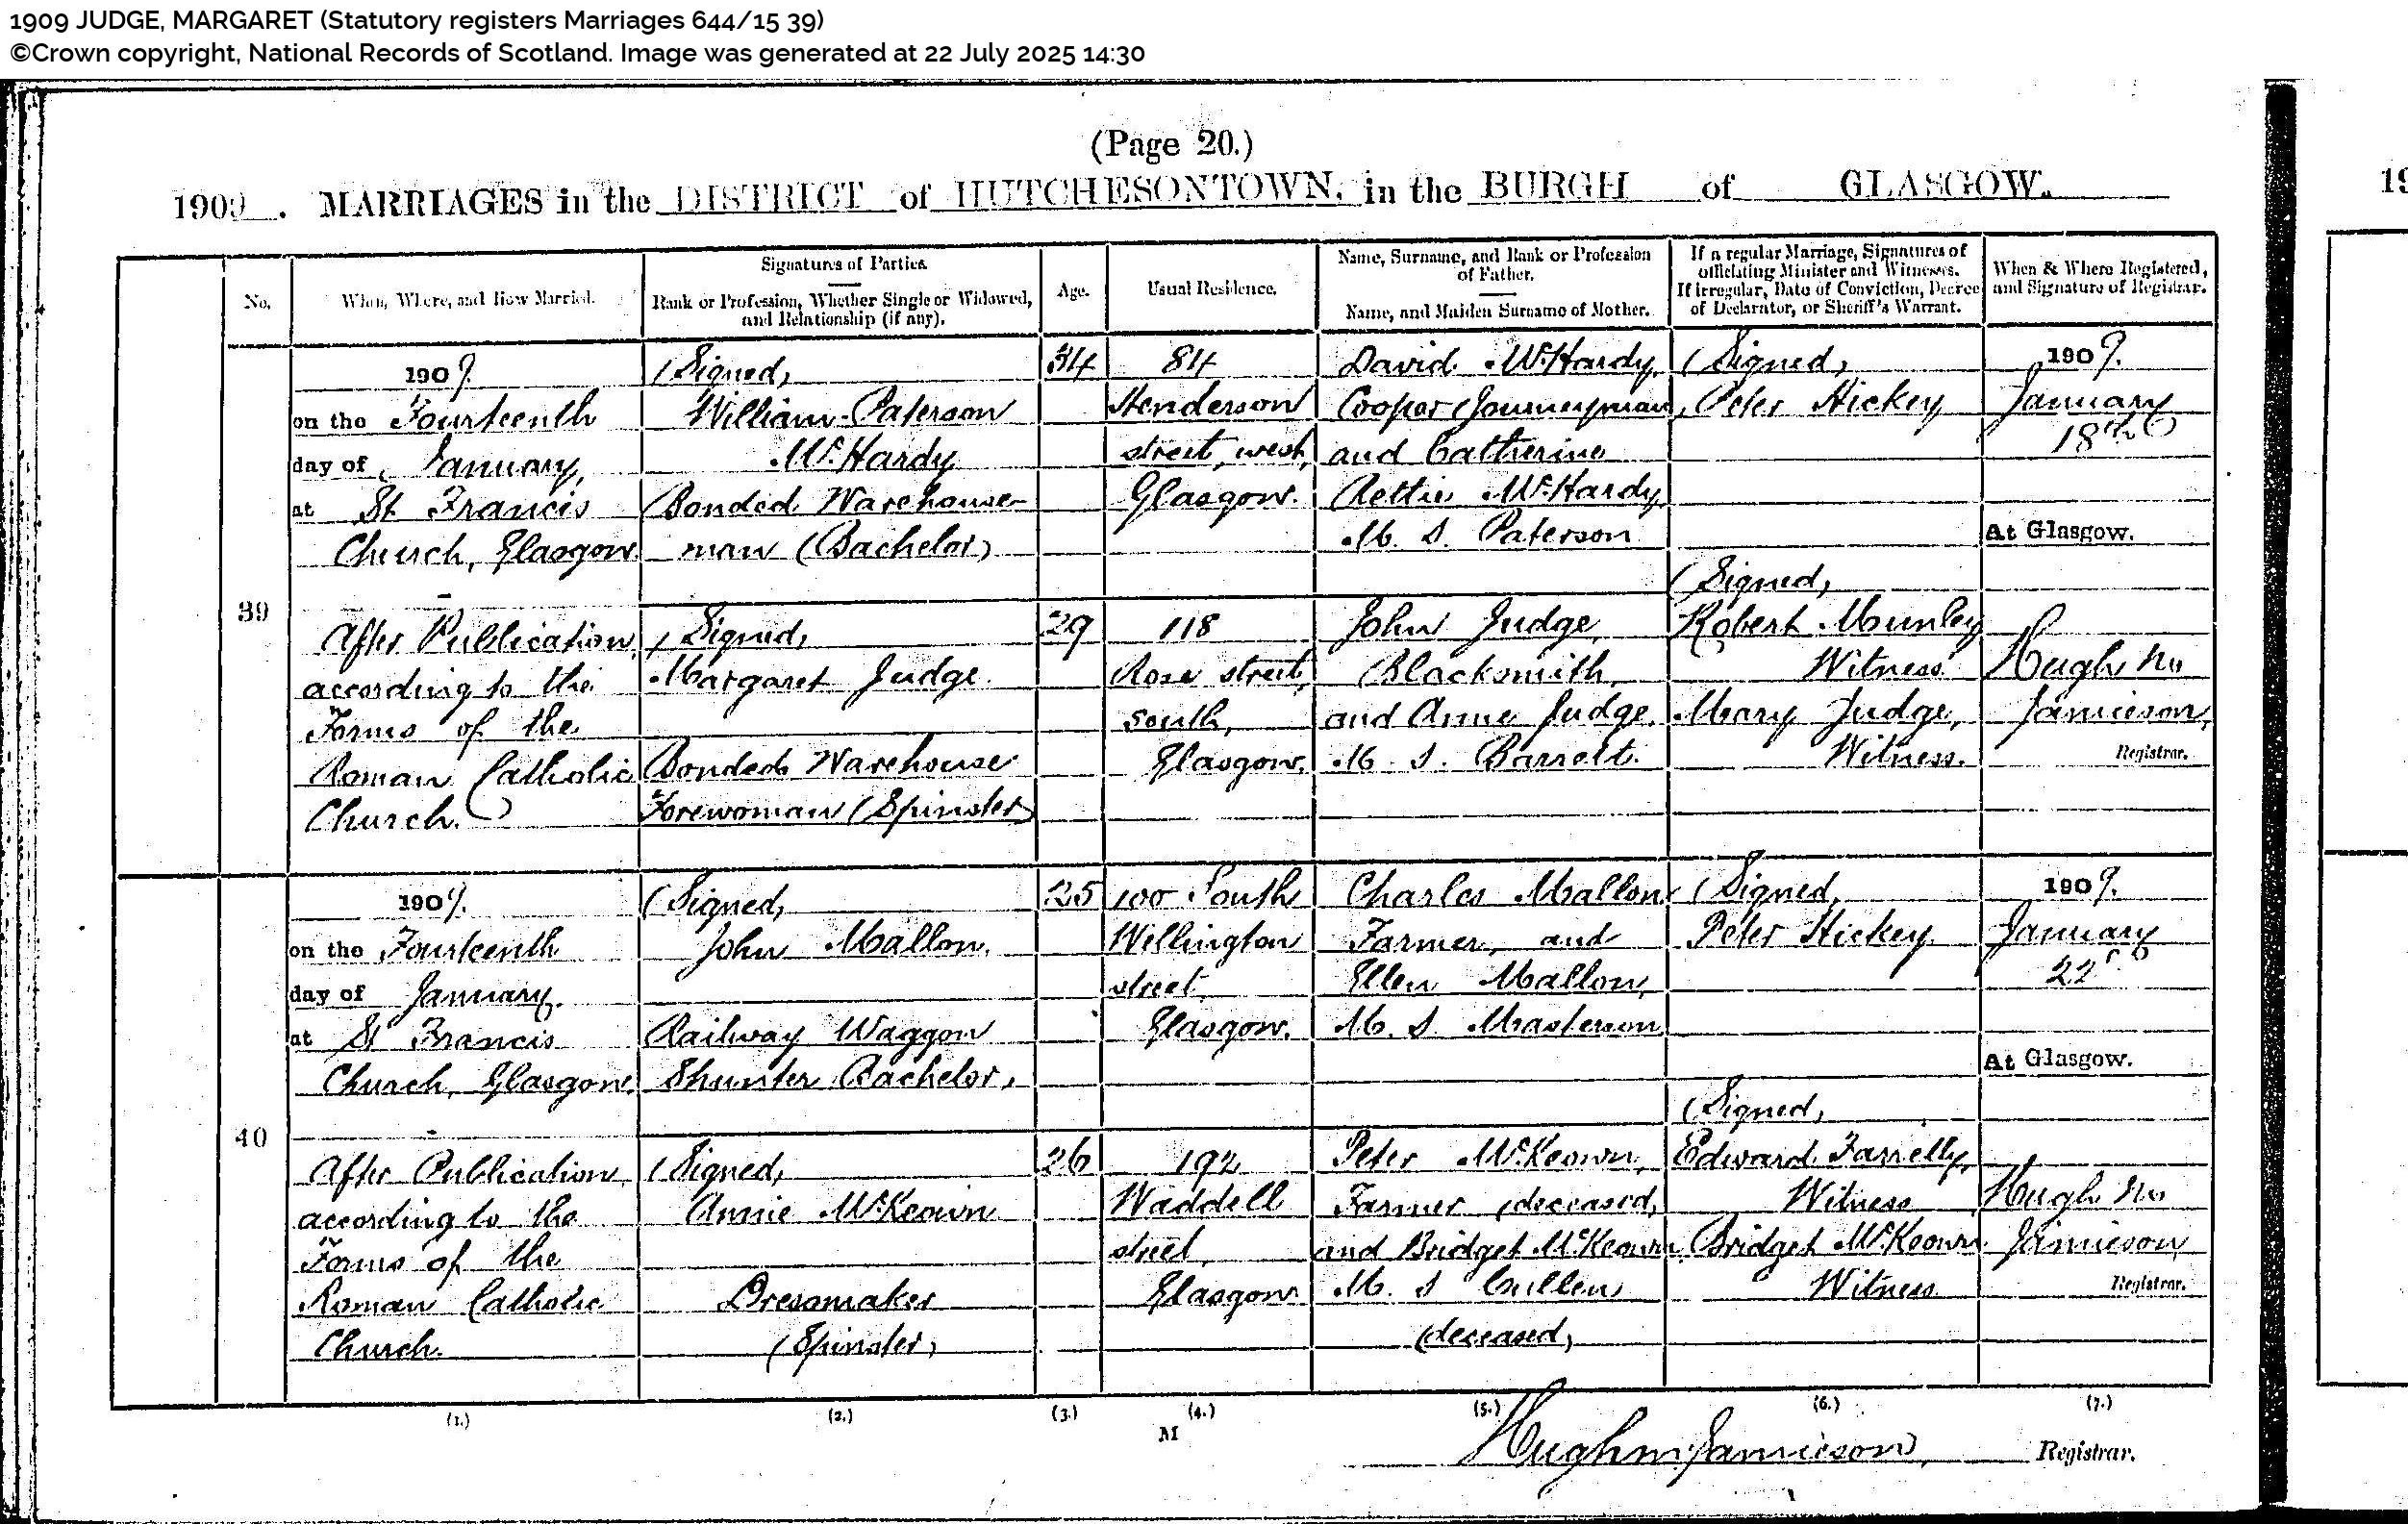 1909 JUDGE, MARGARET (Statutory registers Marriages 644/15 39)
©Crown copyright, National Records of Scotland. Image was generated at 22 July 2025 14:30
(Page 20.)
1909. MARRIAGES in the DISTRICT of HUTCHESONTOWN, in the BURGH of GLASGOW.
No.
When, Where, and How Married.
Signatures of Parties.
Rank or Profession, Whether Single or Widowed,
and Relationship (if any).
Age.
Usual Residence.
Name, Surname, and Rank or Profession
of Father.
Name, and Maiden Surname of Mother.
If a regular Marriage, Signatures of
officiating Minister and Witnesses.
If irregular, Date of Conviction, Decree
of Declarator, or Sheriff's Warrant.
When & Where Registered,
and Signature of Registrar.
39
1909.
on the Fourteenth
day of January,
at St Francis
Church, Glasgow
After Publication,
according to the
Forms of the
Roman Catholic
Church.
(Signed)
William Paterson
McHardy
Bonded Warehouse-
man (Bachelor)
(Signed)
Margaret Judge
Bonded Warehouse
Forewoman (Spinster)
34
29
84
Henderson
street, west,
Glasgow.
118
Rose street,
south,
Glasgow.
David McHardy,
Cooper (Journeyman)
and Catherine
Rettie McHardy
M. S. Paterson
John Judge,
Blacksmith,
and Anne Judge.
M. S. Barrett.
(Signed)
Peter Hickey
(Signed)
Robert Munley
Witness
Mary Judge,
Witness.
1909.
January
18th
At Glasgow.
Hugh M
Jamieson,
Registrar.
40
1909.
on the Fourteenth
day of January.
at St Francis
Church, Glasgow.
After Publication
according to the
Forms of the
Roman Catholic
Church.
(Signed)
John Mallon.
Railway Waggon
Shunter (Bachelor)
(Signed)
Annie McKeown
Dressmaker
(Spinster)
25
26
100 South
Wellington
street.
Glasgow.
192
Waddell
street,
Glasgow
Charles Mallon
Farmer, and
Ellen Mallon,
M. S. Masterson
Peter McKeown,
Farmer (deceased)
and Bridget McKeown
M. S Cullen
(deceased)
(Signed)
Peter Hickey
(Signed)
Edward Farrelly,
Witness
Bridget McKeown
Witness
1909.
January
22
At Glasgow.
Hugh M
Jamieson
Registrar.
(1.) (2.) (3.) (4.) (5.) (6.) (7.)
M
Hugh M Jamieson, Registrar.
19